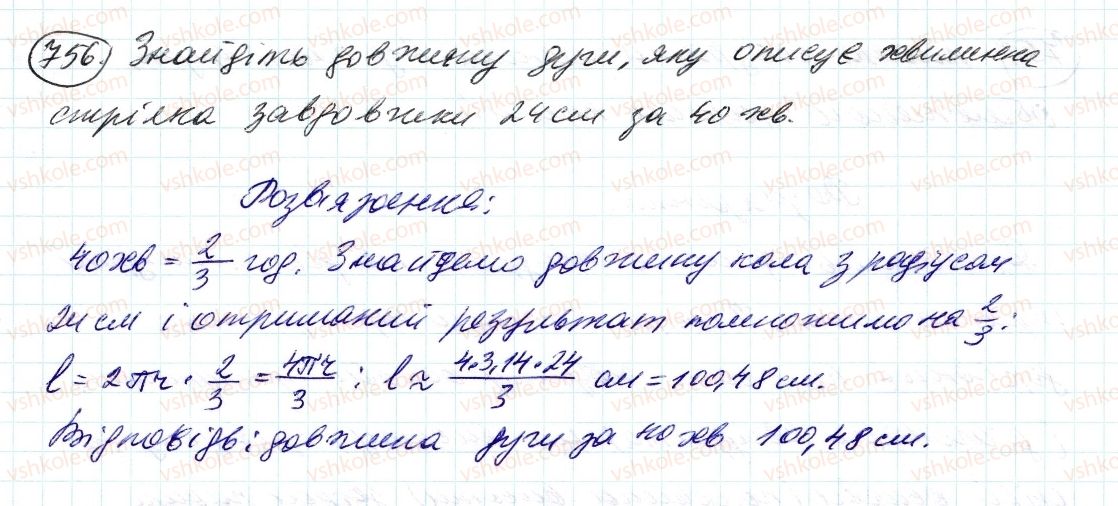 756. Знайдіть довжину дуги, яку описує хвилинна
стрілка завдовжки 24 см за 40 хв.
Розв'язання:
40 хв = 2/3 год. Знайдемо довжину кола з радіусом
24 см і отриманий результат помножимо на 2/3:
l = 2πr · 2/3 = 4πr/3 ; l ≈ 4·3,14·24/3 см = 100,48 см.
Відповідь: довжина дуги за 40 хв 100,48 см.